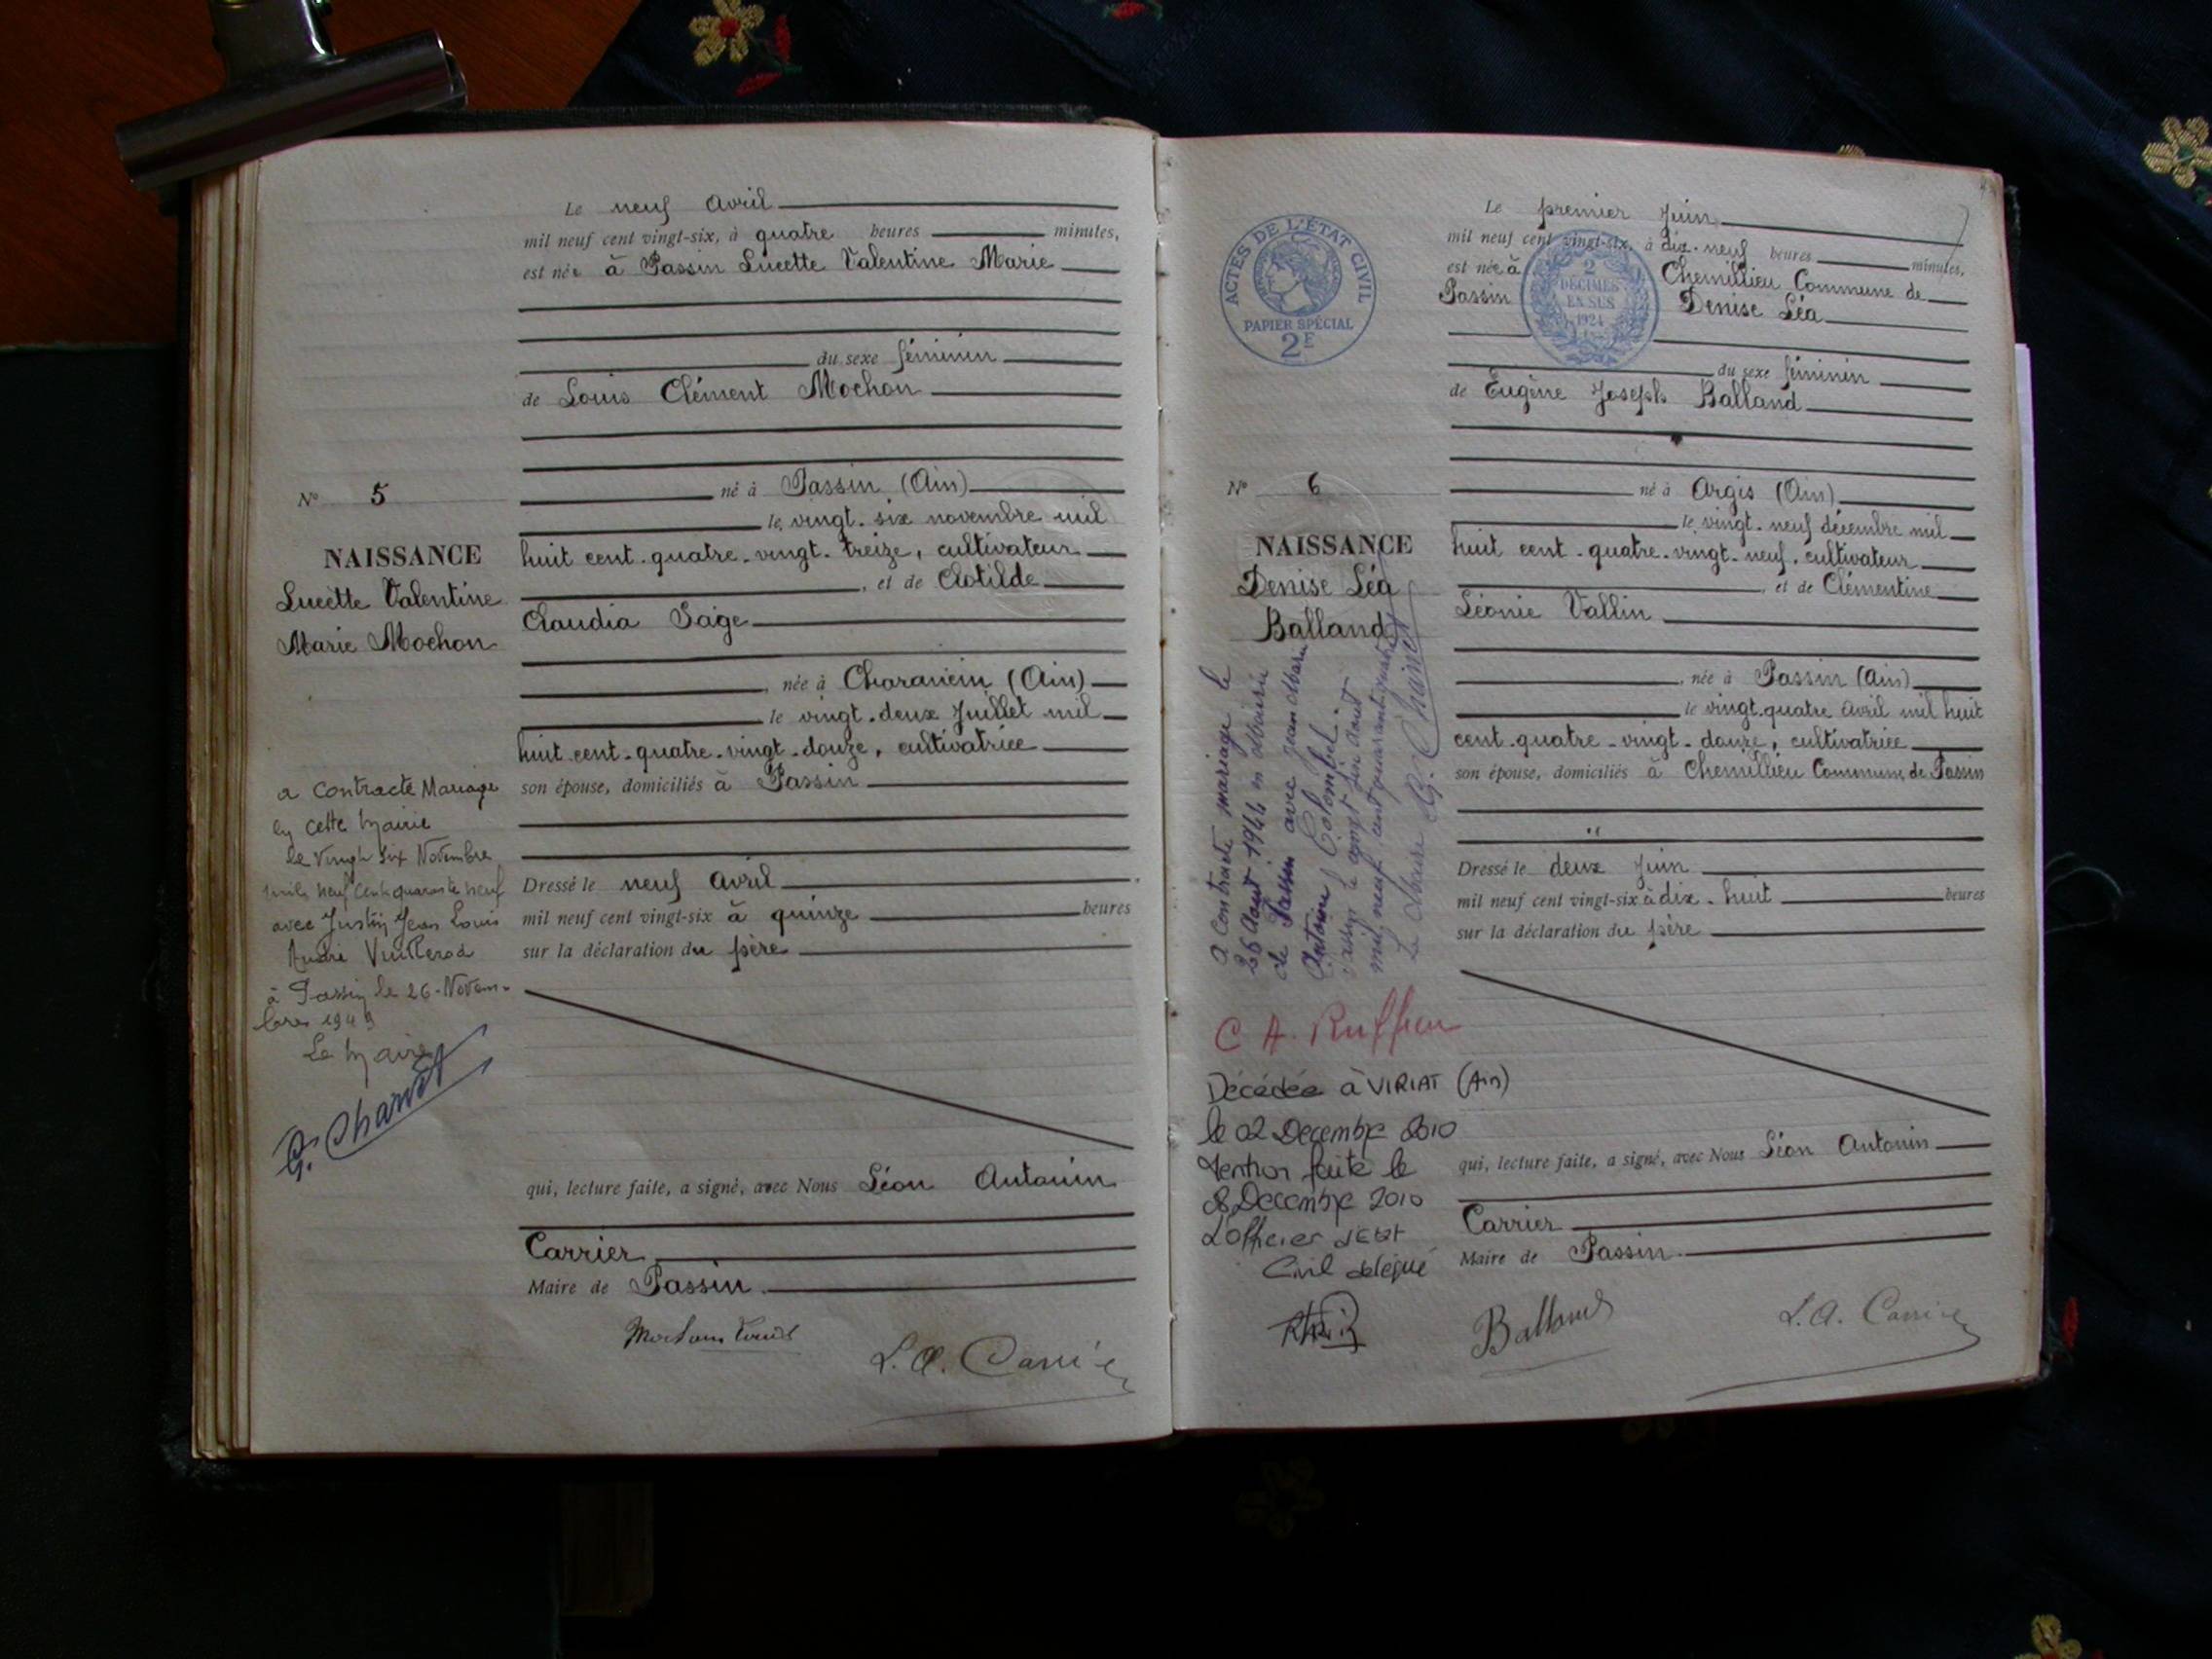 Le neuf Avril
mil neuf cent vingt-six, à quatre heures minutes,
est née à Passin Lucette Valentine Marie
du sexe féminin
de Louis Clément Mochon
né à Passin (Ain)
le vingt-six novembre mil
huit cent-quatre-vingt-treize, cultivateur
, et de Clotilde
Claudia Sage
, née à Charancin (Ain)
le vingt-deux Juillet mil
huit cent-quatre-vingt-douze, cultivatrice
son épouse, domiciliés à Passin
Dressé le neuf Avril
mil neuf cent vingt-six à quinze heures
sur la déclaration du père
qui, lecture faite, a signé, avec Nous Léon Antonin
Carrier
Maire de Passin
L. A. Carrier
N° 5
NAISSANCE
Lucette Valentine
Marie Mochon
a Contracté Mariage
en cette Mairie
le Vingt Six Novembre
mile neuf cent quarante neuf
avec Justin Jean Louis
André
à Passin le 26 - Novem-
bre 1949
Le Maire
Le premier Juin
mil neuf cent vingt-six, à dix-neuf heures minutes,
est née à Chemillieu Commune de
Passin Denise Léa
du sexe féminin
de Eugène Joseph Balland
né à Argis (Ain)
le vingt-neuf décembre mil
huit cent-quatre-vingt-neuf, cultivateur
, et de Clémentine
Léonie Vallin
, née à Passin (Ain)
le vingt-quatre Avril mil huit
cent-quatre-vingt-douze, cultivatrice
son épouse, domiciliés à Chemillieu Commune de Passin
Dressé le deux Juin
mil neuf cent vingt-six à dix-huit heures
sur la déclaration du père
qui, lecture faite, a signé, avec Nous Léon Antonin
Carrier
Maire de Passin
Balland
L. A. Carrier
ACTES DE L'ÉTAT CIVIL
PAPIER SPÉCIAL
2F
2
DÉCIMES
EN SUS
1924
N° 6
NAISSANCE
Denise Léa
Balland
a contracté mariage le
26 Août 1944 en Mairie
de Passin avec Jean Marie
Antoine
Passin le vingt six Août
mil neuf cent quarante quatre
Le Maire
Décédée à VIRIAT (Ain)
le 02 Decembre 2010
Mention faite le
08 Decembre 2010
L'Officier d'Etat
Civil délégué